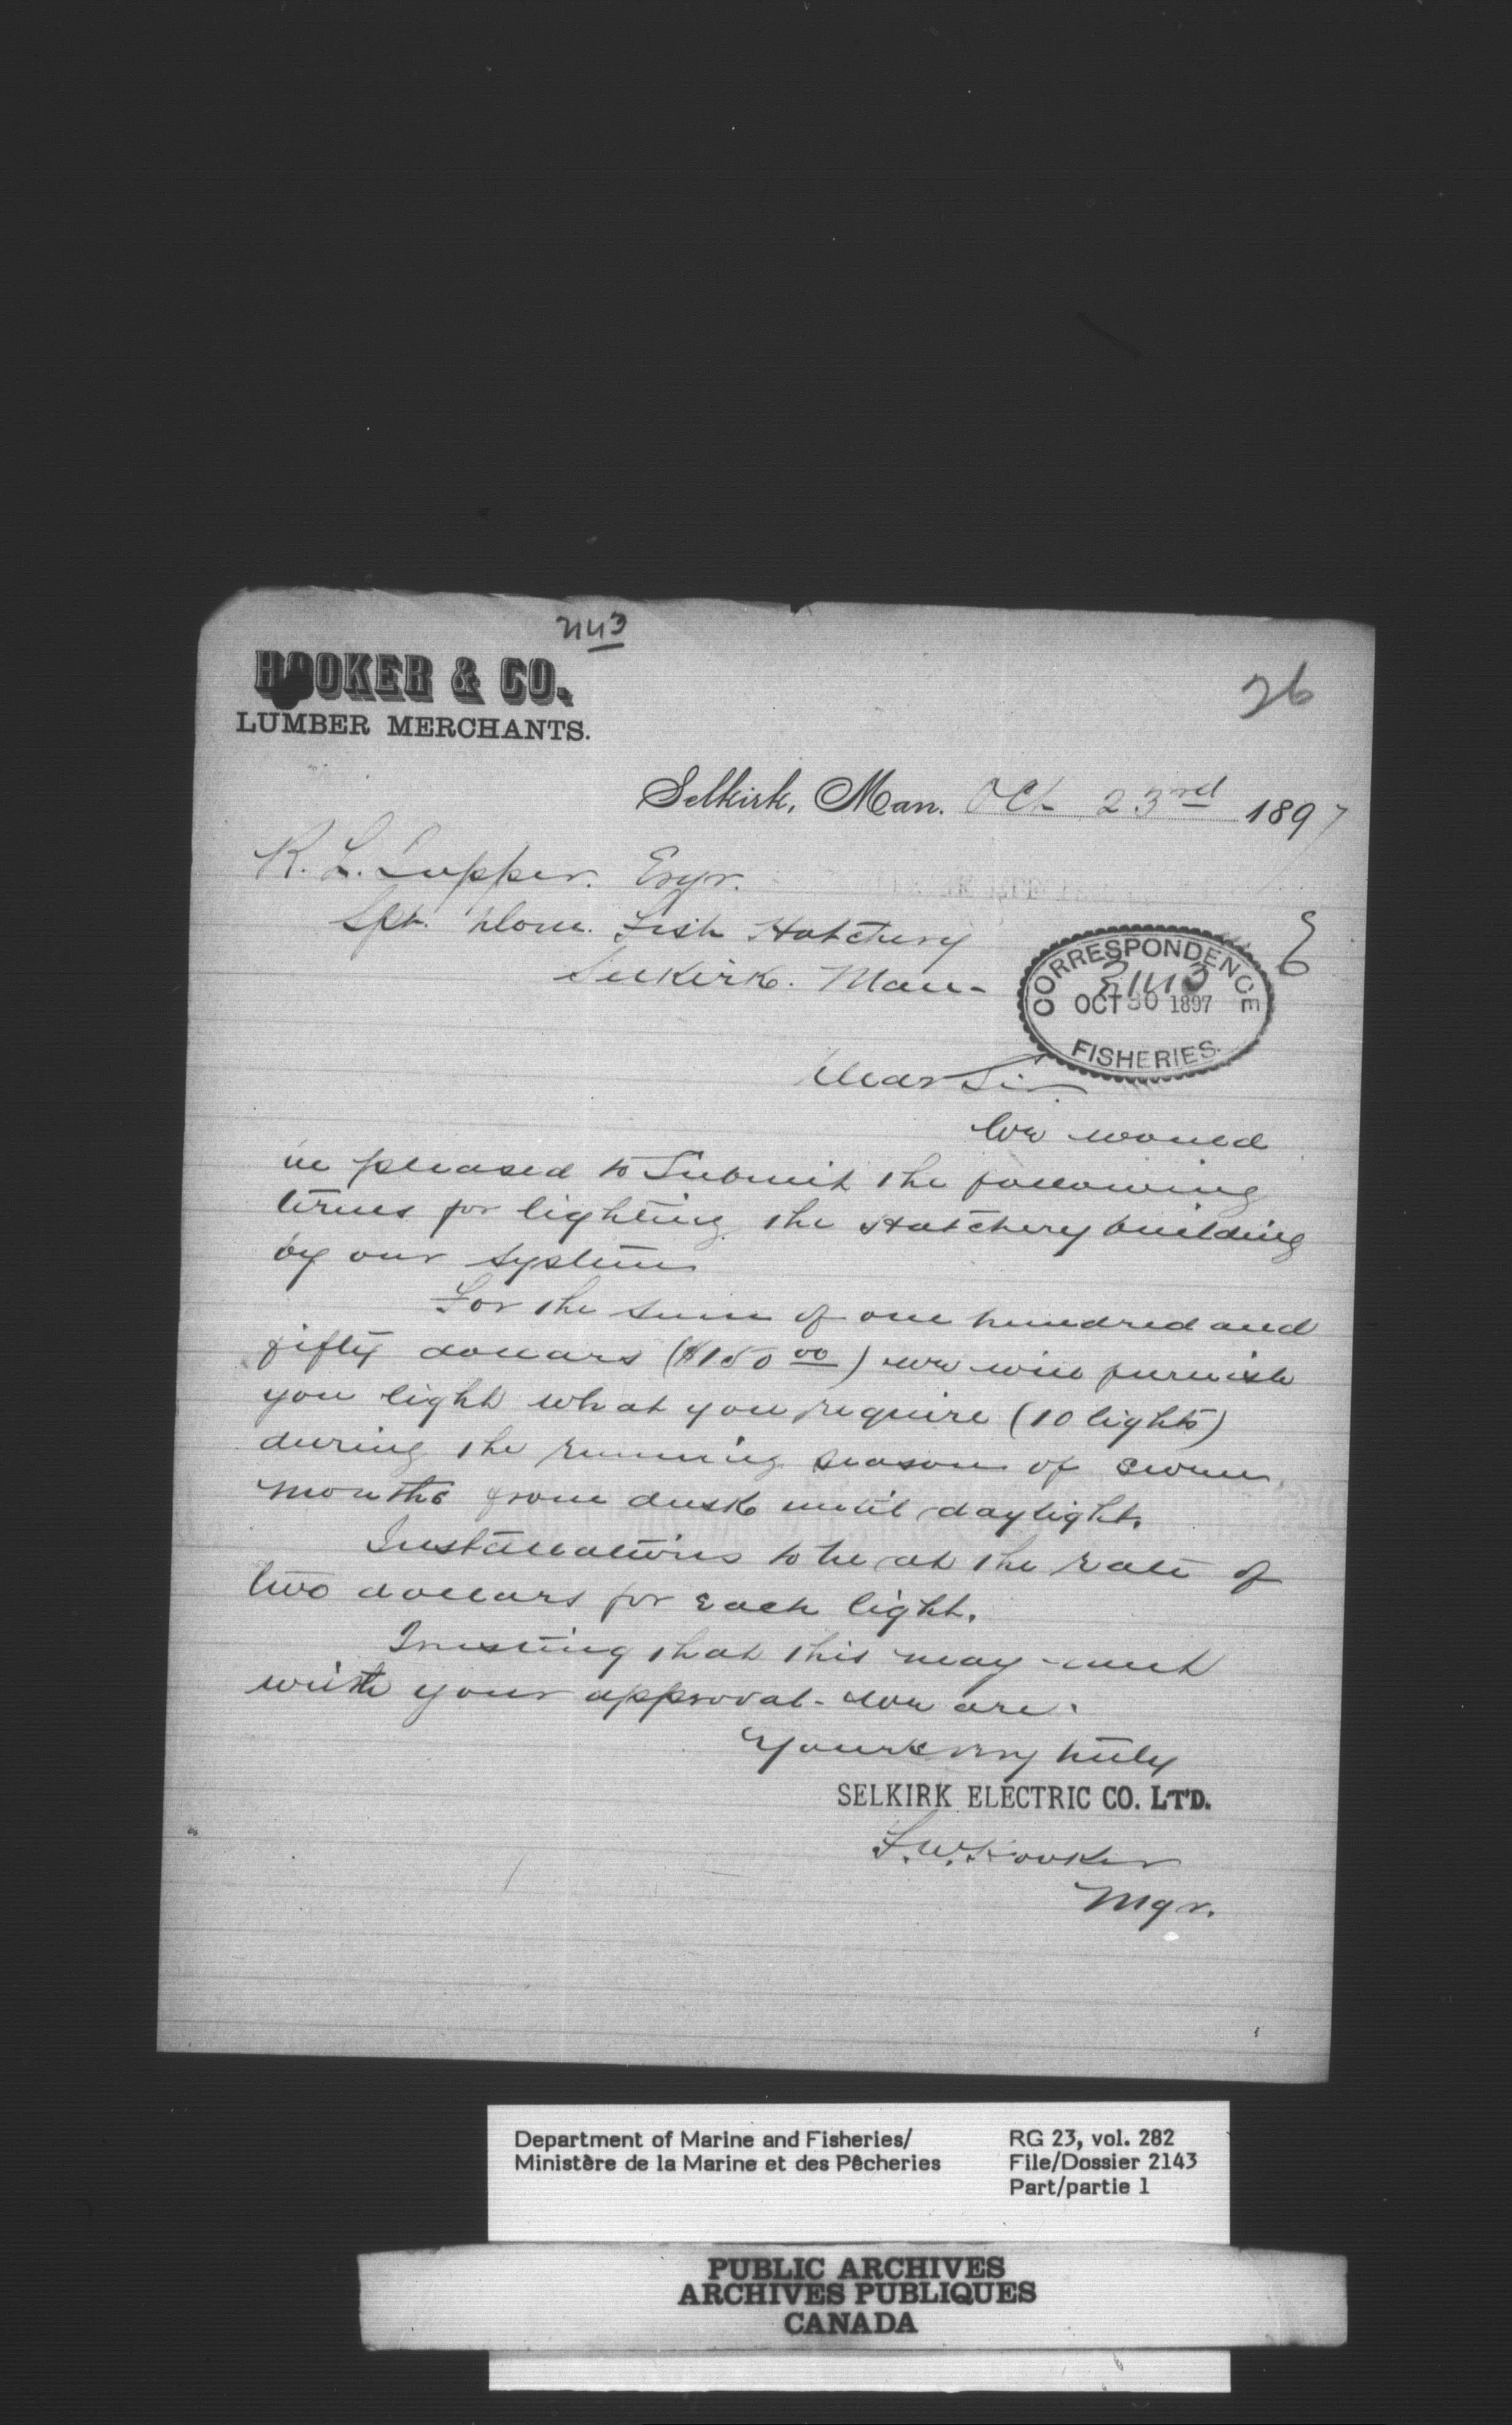 2143
HOOKER & CO.
LUMBER MERCHANTS.
26
Selkirk, Man. Oct 23rd 1897
R. L. Tupper. Esqr.
Spt. Dom. Fish Hatchery
Selkirk. Man-
CORRESPONDENCE
2143
OCT 30 1897
FISHERIES.
Dear Sir
We would
be pleased to Submit the following
terms for lighting the Hatchery building
by our system
For the sum of one hundred and
fifty dollars ($150 00) we will furnish
you light what you require (10 lights)
during the running season of seven
months from dusk until daylight.
Installations to be at the rate of
two dollars for each light.
Trusting that this may meet
with your approval - We are.
Yours very truly
SELKIRK ELECTRIC CO. LT'D.
F. W. Hooker
Mgr.
Department of Marine and Fisheries/
Ministère de la Marine et des Pêcheries
RG 23, vol. 282
File/Dossier 2143
Part/partie 1
PUBLIC ARCHIVES
ARCHIVES PUBLIQUES
CANADA